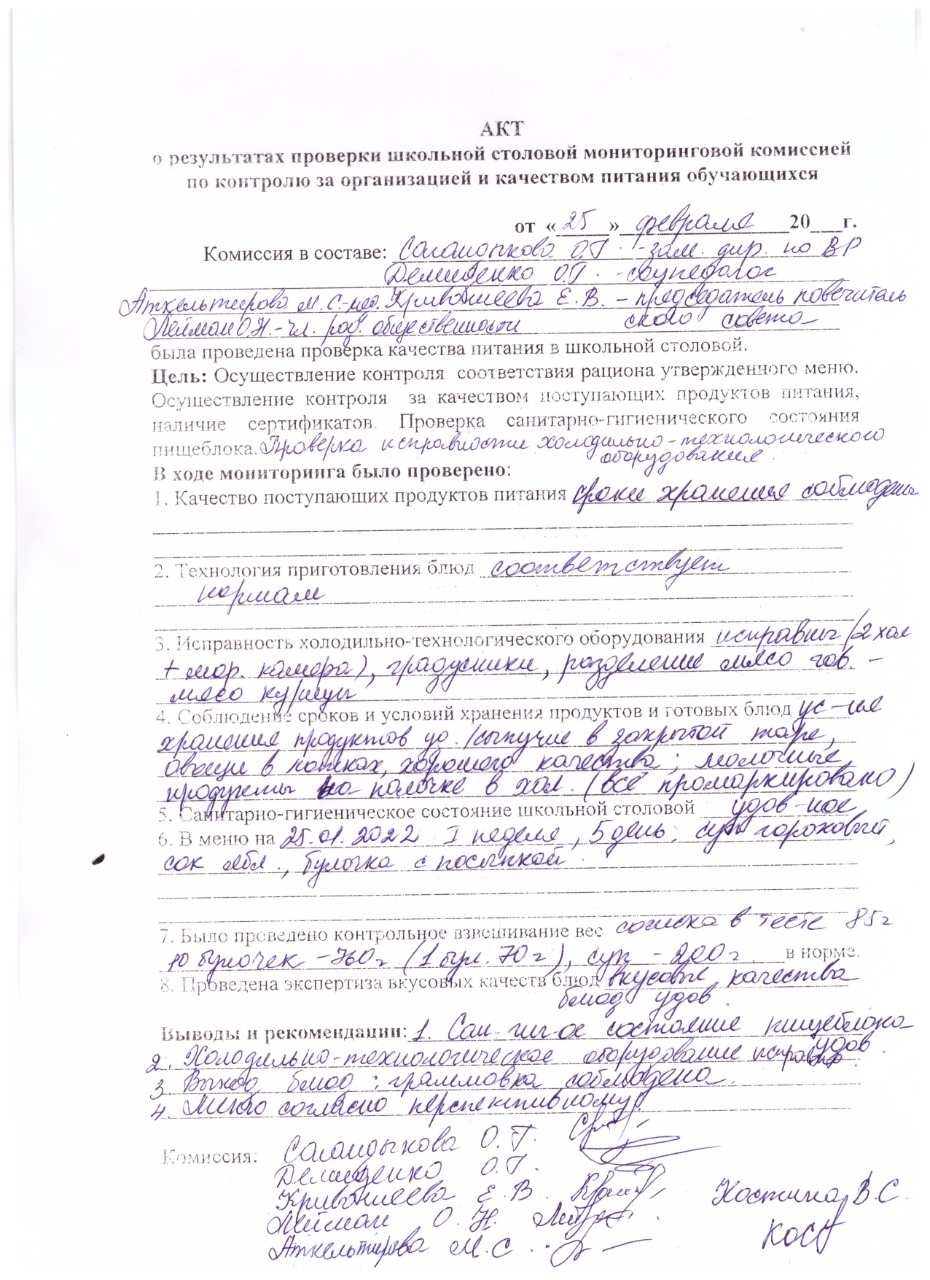 АКТ
о результатах проверки школьной столовой мониторинговой комиссией
по контролю за организацией и качеством питания обучающихся
от «25» февраля 20___г.
Комиссия в составе: Саландыкова О.Г. - зам. дир. по ВР
Демиденко О.Г. - соцпедагог
Аткельтирова М.С. Кривошеева Е.В. – председатель попечитель
Лейман О.Н. - чл. род. общественности ского совета
была проведена проверка качества питания в школьной столовой.
Цель: Осуществление контроля соответствия рациона утвержденного меню.
Осуществление контроля за качеством поступающих продуктов питания,
наличие сертификатов. Проверка санитарно-гигиенического состояния
пищеблока. Проверка исправности холодильно-технологического
оборудования.
В ходе мониторинга было проверено:
1. Качество поступающих продуктов питания сроки хранения соблюдены
2. Технология приготовления блюд соответствует
нормам
3. Исправность холодильно-технологического оборудования исправны (2 хол
+ мор. камера), градусники, разделение мясо гов. –
мясо курицы
4. Соблюдение сроков и условий хранения продуктов и готовых блюд ус-ия
хранения продуктов уд. /сыпучие в закрытой таре,
овощи в хорошего качества; молочные
продукты на полочке в хол. (всё промаркировано)
5. Санитарно-гигиеническое состояние школьной столовой удов-ное
6. В меню на 25.01.2022 I неделя, 5 день: суп гороховый,
сок ябл., булочка с посыпкой.
7. Было проведено контрольное взвешивание вес сосиска в тесте 85г
10 булочек – 760г (1 бул. 70г), суп - 200г. в норме.
8. Проведена экспертиза вкусовых качеств блюд вкусовые качества
блюд удов.
Выводы и рекомендации: 1. Сан-гиг-ое состояние пищеблока
удов.
2. Холодильно-технологическое оборудование исправно
3. Выход блюд; граммовка соблюдена.
4. Меню согласно перспективному.
Комиссия: Саландыкова О.Г.
Демиденко О.Г.
Кривошеева Е.В. Костина В.С.
Лейман О.Н.
Аткельтирова М.С.